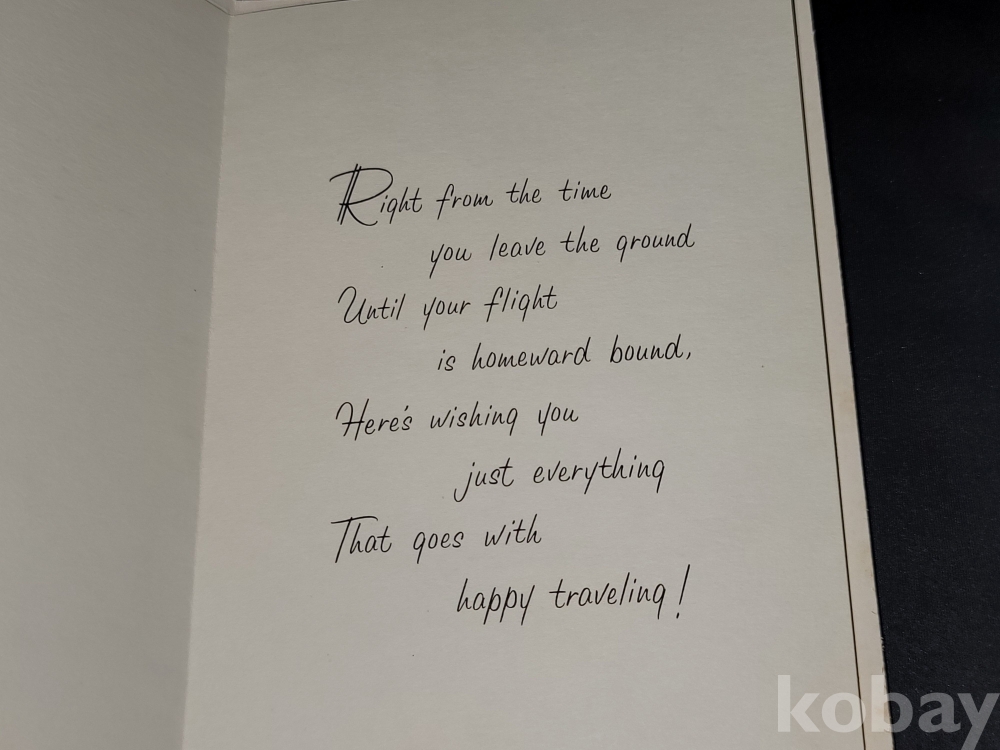 Right from the time
you leave the ground
Until your flight
is homeward bound,
Here's wishing you
just everything
That goes with
happy traveling!
kobay